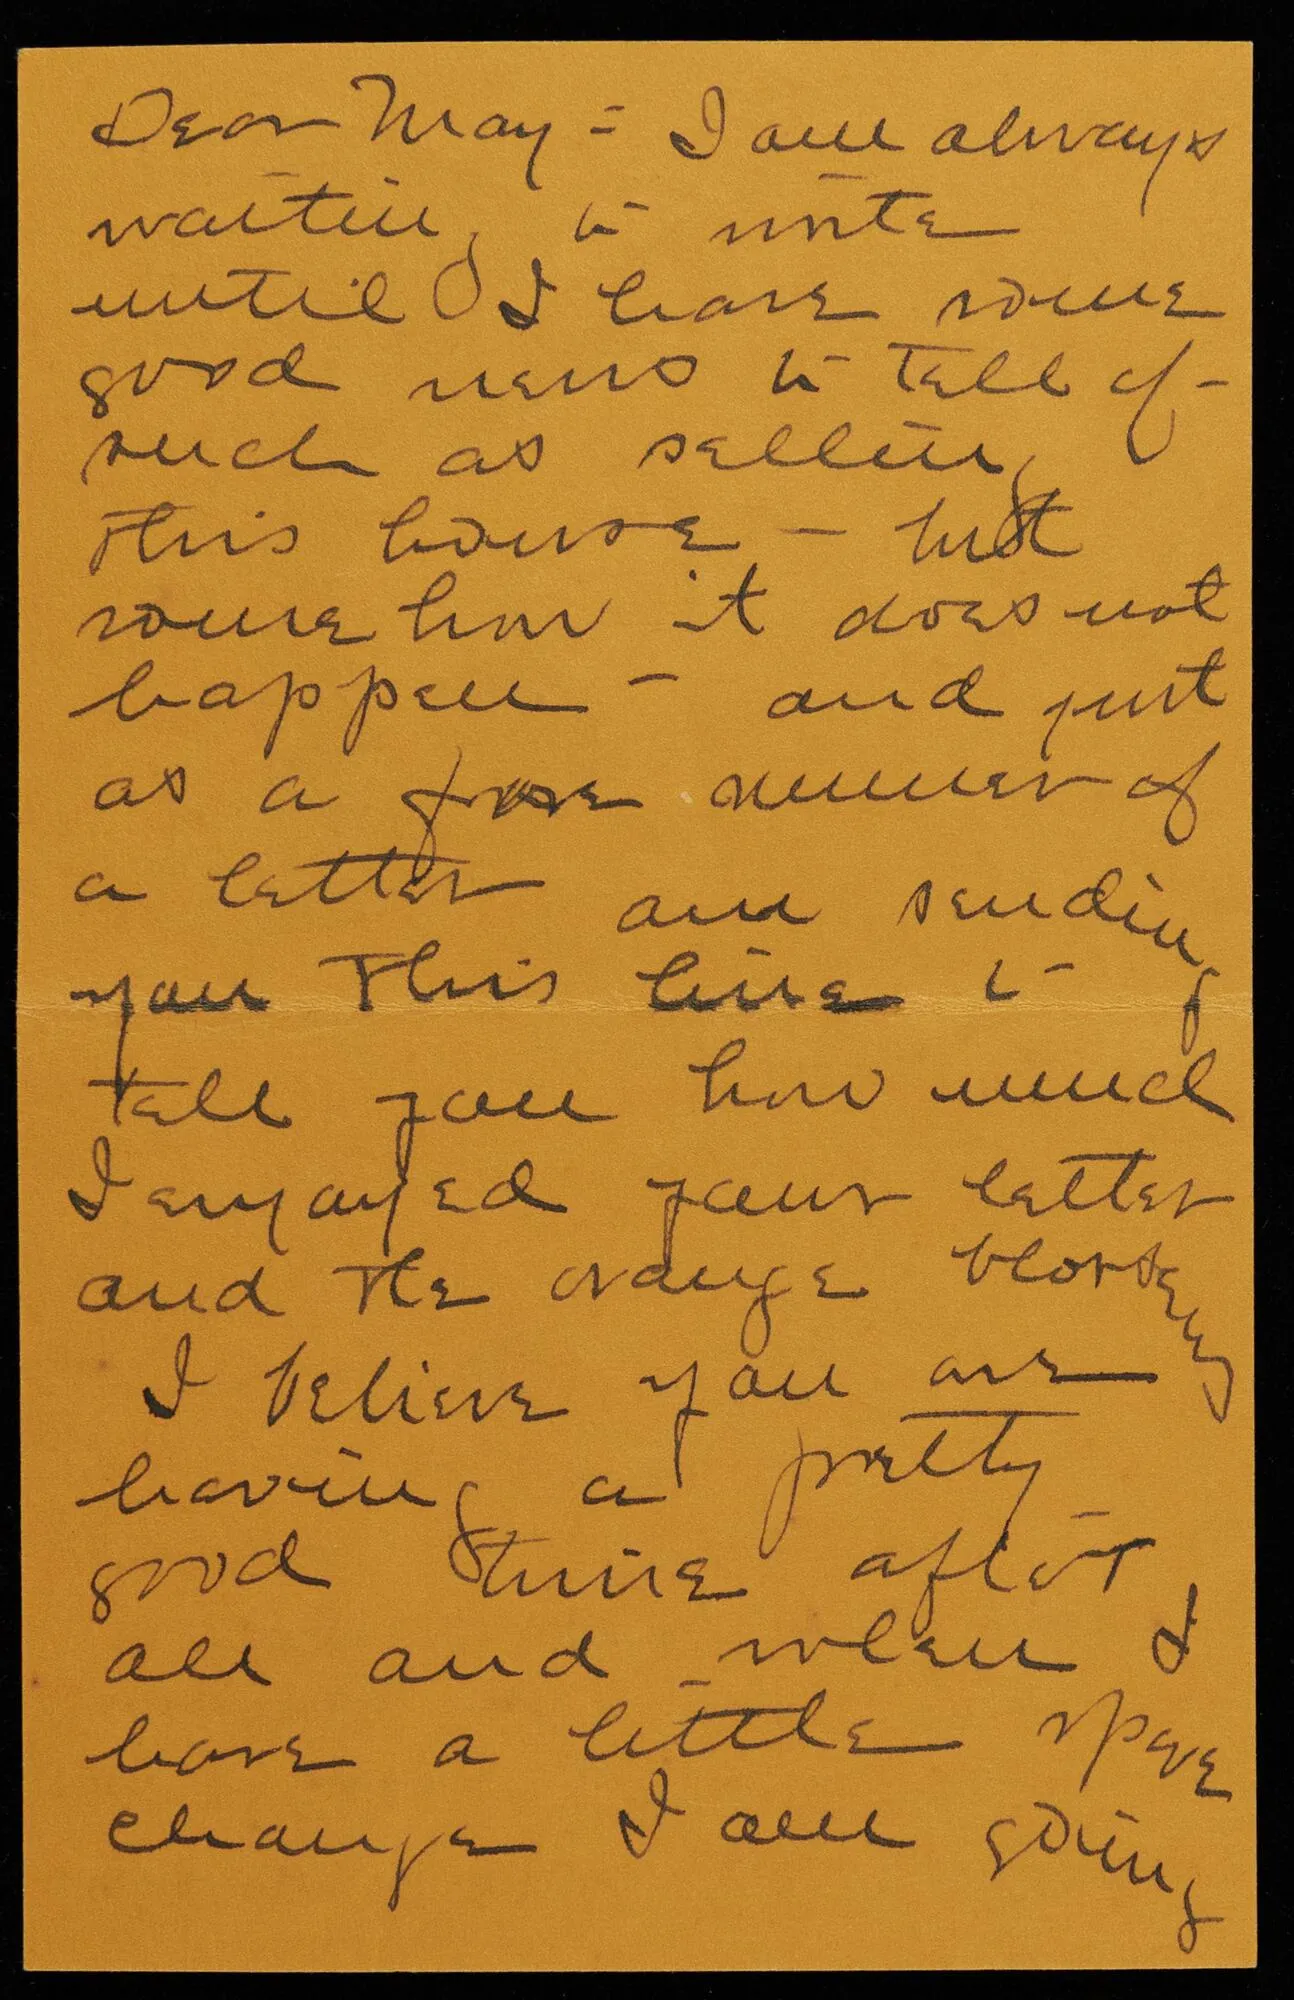 Dear May = I am always
waiting to write
until I have some
good news to tell of -
such as selling
this house - but
some how it does not
happen - and just
as a fore runner of
a letter am sending
you this line to
tell you how much
I enjoyed your letter
and the orange blossoms
I believe you are
having a pretty
good time after
all and when I
have a little spare
change I am going